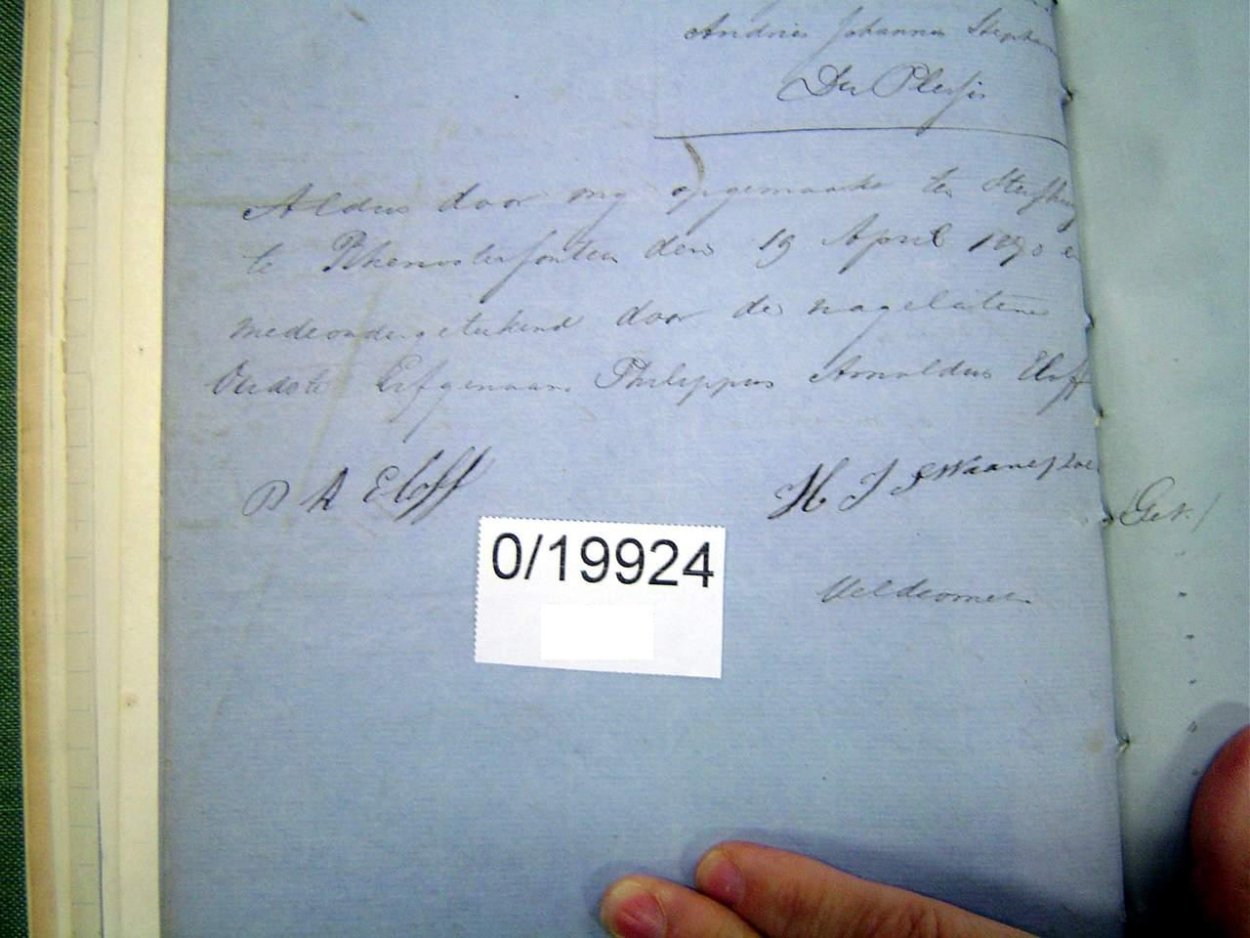 Andries Johannes Stephan
Du Plessis
Aldus door my opgemaakt ten Sterfhuiz
te Rhenosterfontein den 19 April 1890 e
medeondergetekend door de nagelatene
Oudste Erfgenaam Philippus Arnoldus Eloff
P A Eloff
H J Swaanepoel
Get./
0/19924
Veldcornet